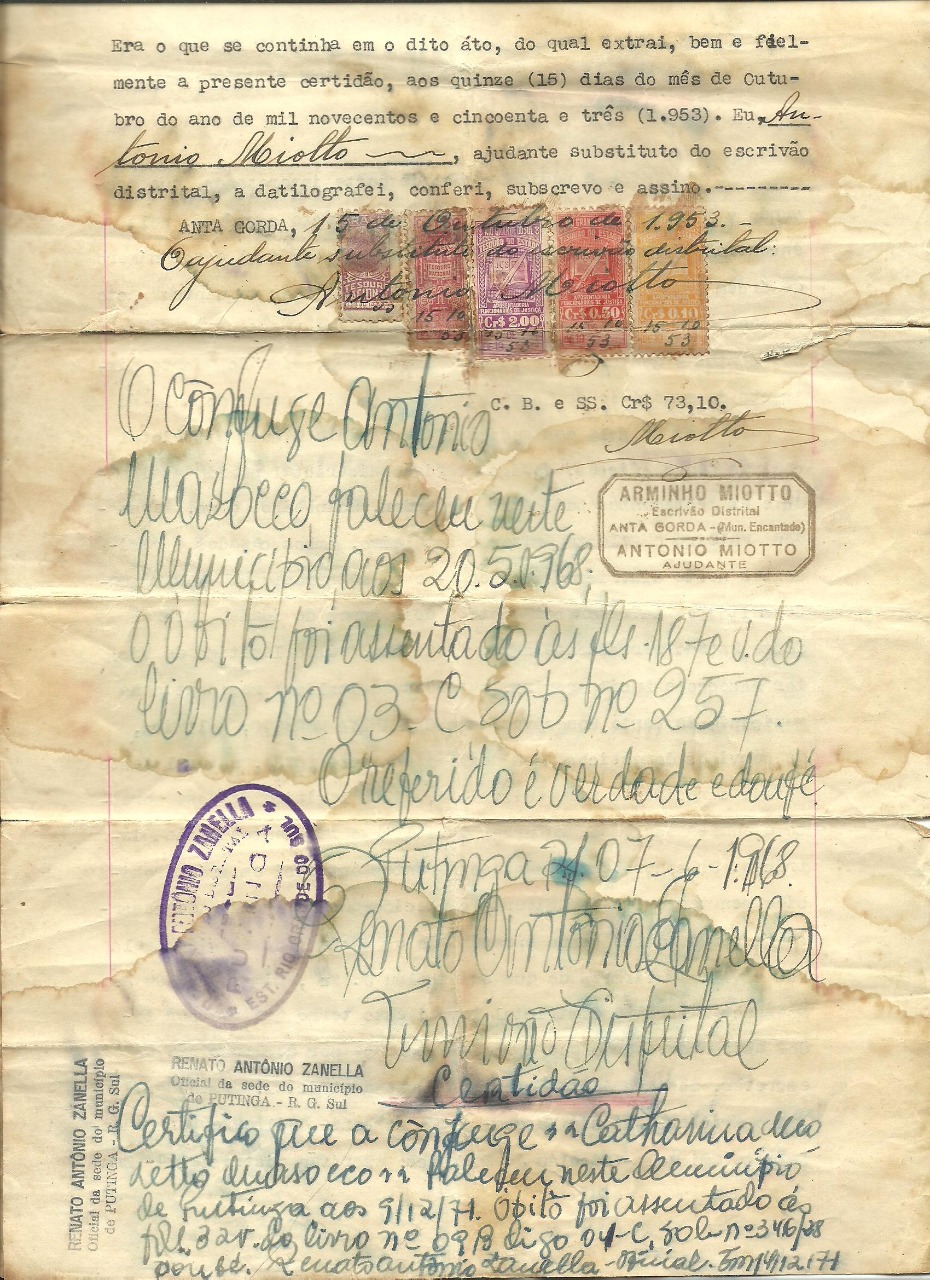 Era o que se continha em o dito áto, do qual extrai, bem e fiel-
mente a presente certidão, aos quinze (15) dias do mês de Outu-
bro do ano de mil novecentos e cincoenta e três (1.953). Eu, An-
tonio Miotto, ajudante substituto do escrivão
distrital, a datilografei, conferi, subscrevo e assino.---------
ANTA GORDA, 15 de Outubro de 1.953.-
O ajudante substituto do escrivão distrital:
Antonio Miotto
TESOURO
Cr$ 2,00
Cr$ 0.50
Cr$ 0.10
15 10
53
15 10
53
15 10
53
C. B. e SS. Cr$ 73,10.
Miotto
ARMINHO MIOTTO
Escrivão Distrital
ANTA GORDA - (Mun. Encantado)
ANTONIO MIOTTO
AJUDANTE
O Cônjuge Antonio
Masocco, faleceu neste
Município aos 20.5.1968.
O Óbito foi assentado às fls. 187 e v. do
livro nº 03-C sob nº 257.
O referido é verdade e dou fé
Putinga, 07-6-1.968.
Renato Antônio Zanella
Distrital
ANTÔNIO ZANELLA
EST. RIO GRANDE DO SUL
RENATO ANTÔNIO ZANELLA
Oficial da sede do município
de PUTINGA - R. G. Sul
RENATO ANTÔNIO ZANELLA
Oficial da sede do município
de PUTINGA - R. G. Sul
Certidão
Certifico que a cônjuge Catharina
masocco faleceu, neste Município
de Putinga aos 9/12/71. Óbito foi assentado às
fls. 32v. do livro nº 09/B digo 04-C, sob nº 346/28
dou fé. Renato antônio Zanella - Oficial. Em 14/12/71